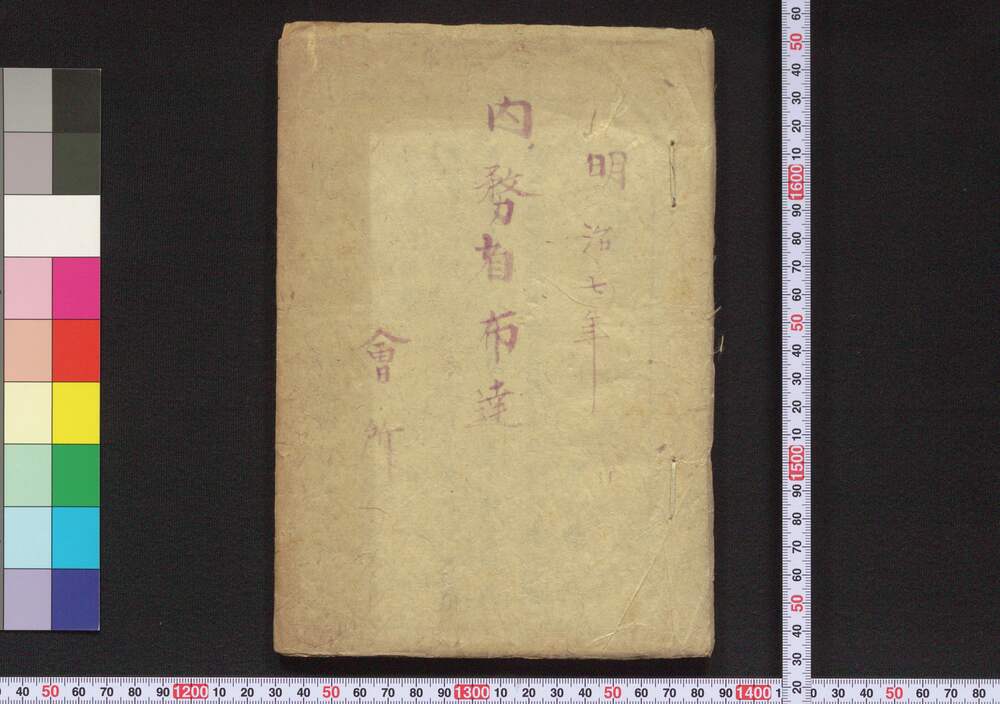 明治七年
内務省布達
會所
60
50
40
30
20
10
1600
90
80
70
60
50
40
30
20
10
1500
90
80
70
60
50
40
30
20
40 50 60 70 80 90 1200 10 20 30 40 50 60 70 80 90 1300 10 20 30 40 50 60 70 80 90 1400 1 0 30 40 50 60 70 80